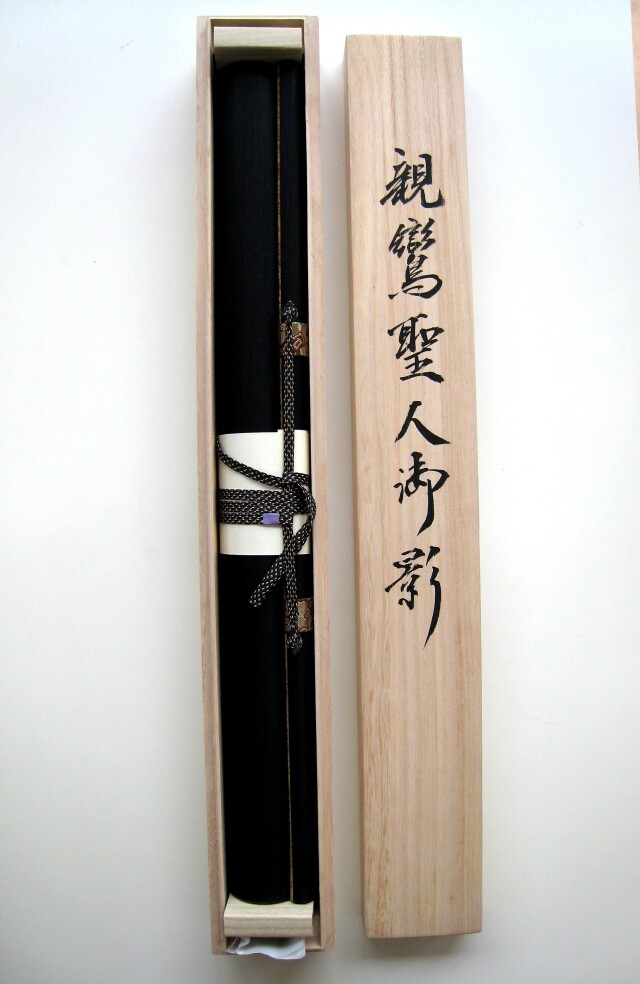 親鸞聖人御影